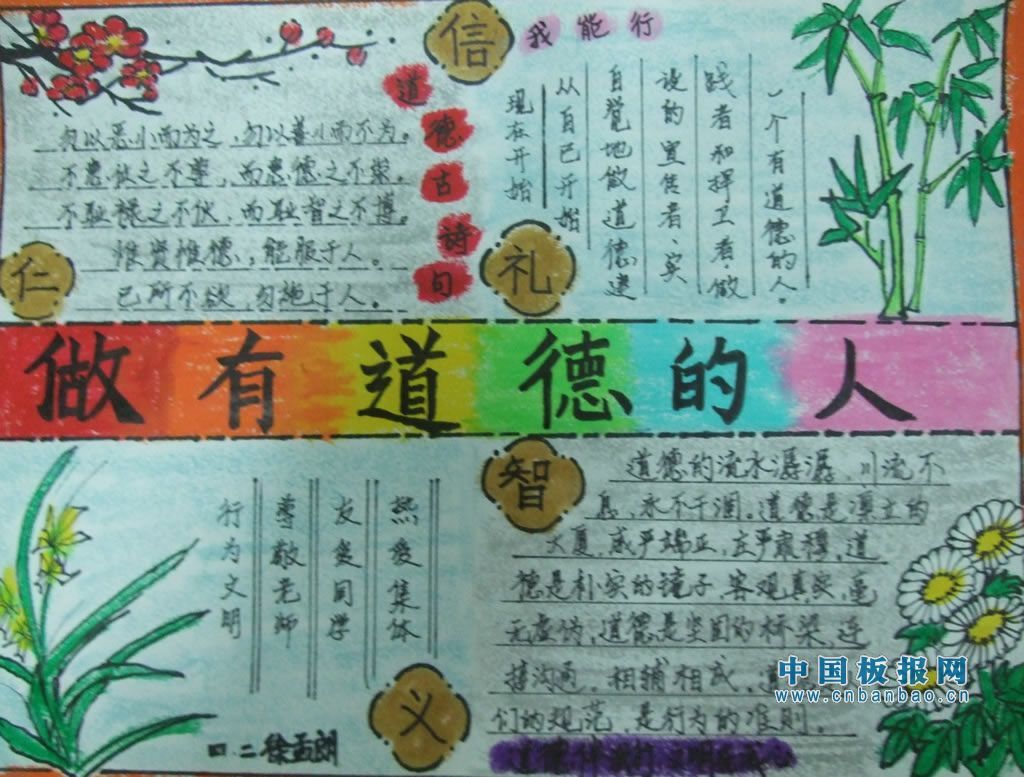 信
我能行
道德古诗句
勿以恶小而为之,勿以善小而不为。
不患位之不尊,而患德之不崇。
不耻禄之不伙,而耻智之不博。
惟贤惟德,能服于人。
己所不欲,勿施于人。
仁
礼
一个有道德的人。
践者和捍卫者,做
设的宣传者、实
自觉地做道德建
从自己开始
现在开始
做有道德的人
热爱集体
友爱同学
尊敬老师
行为文明
义
四.二徐孟朗
智
道德的流水潺潺,川流不
息,永不干涸。道德是凛立的
大厦,威严端正,庄严肃穆,道
德是朴实的镜子,客观真实,毫
无虚伪,道德是坚固的桥梁,连
接沟通,相辅相成,道
们的规范,是行为的准则。
中国板报网
www.cnbanbao.cn